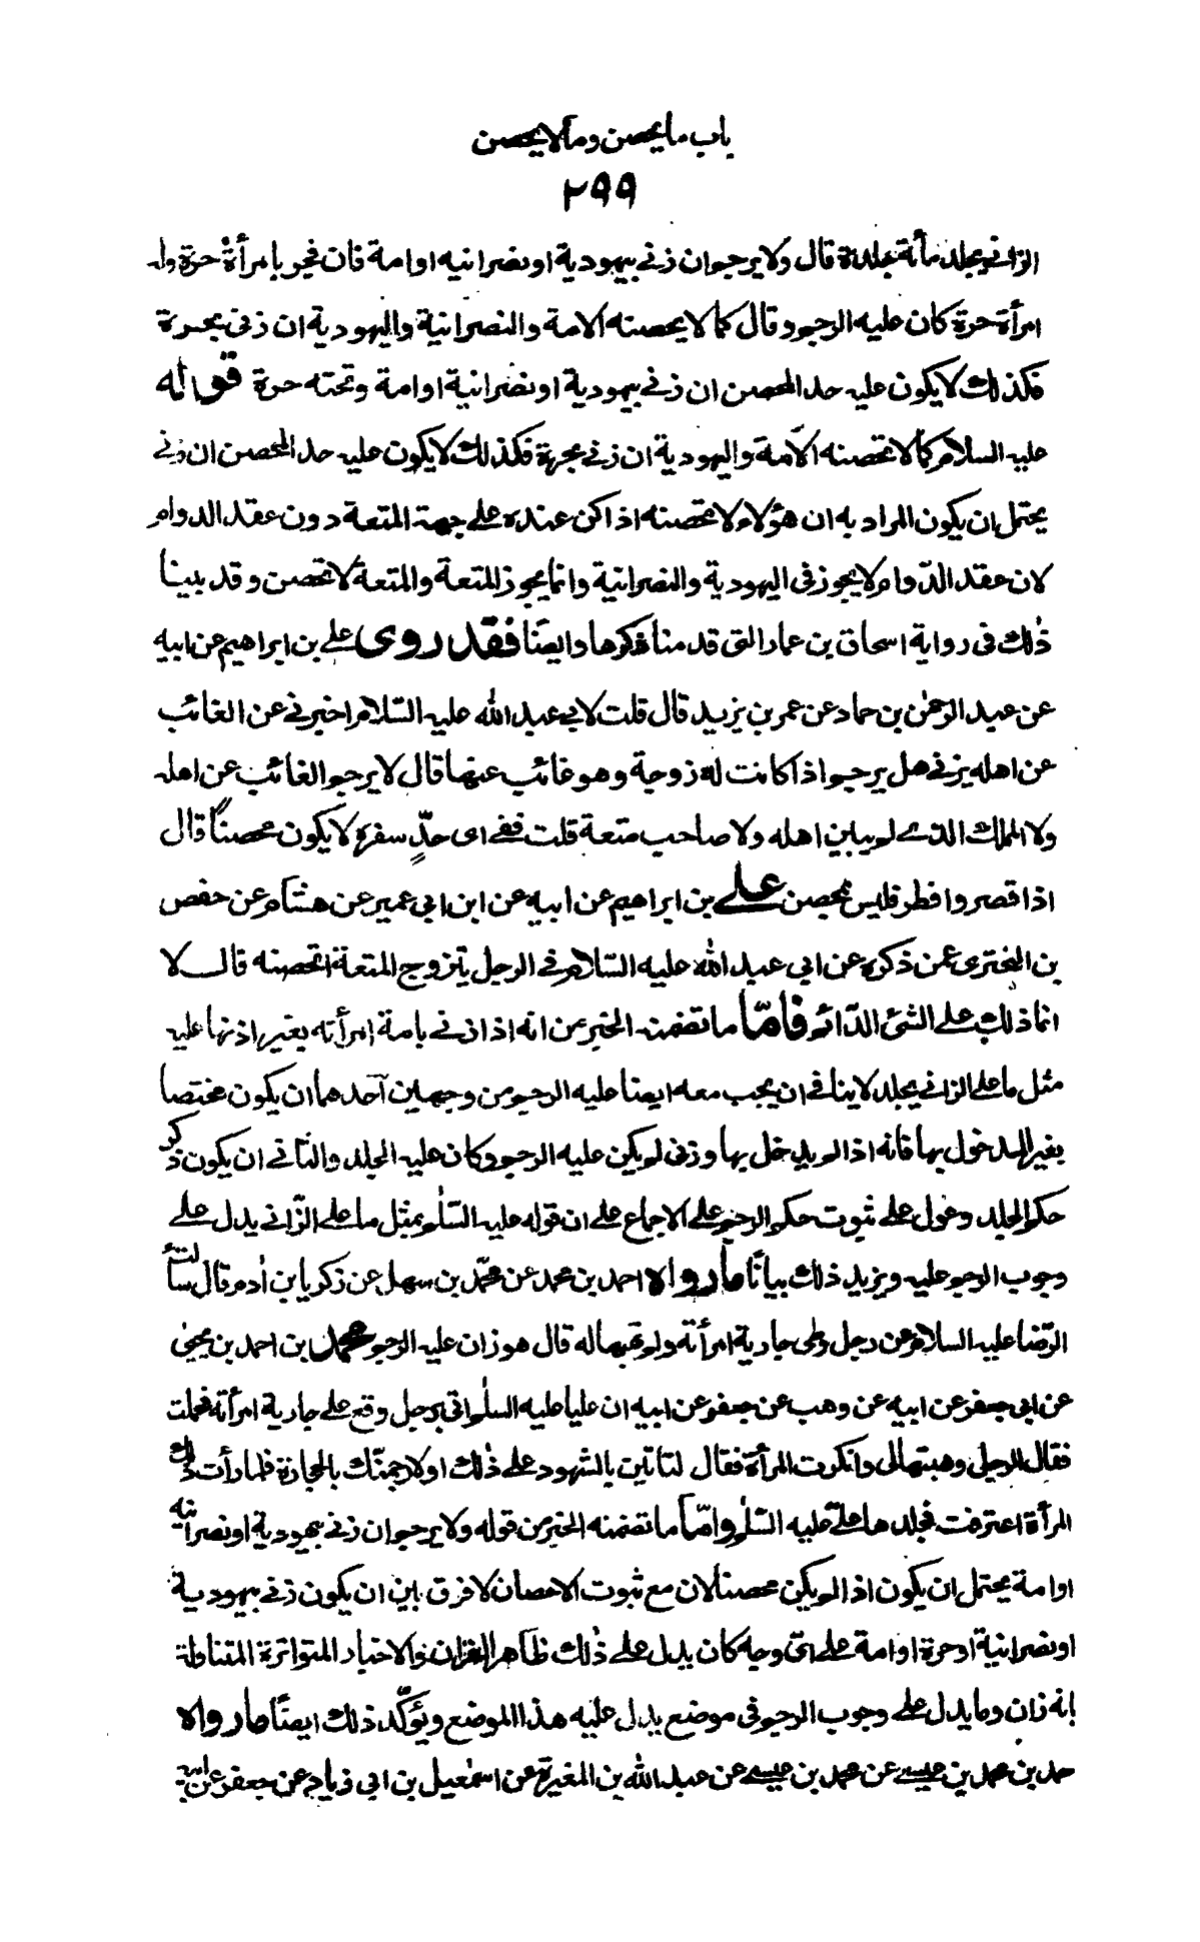 باب ما يحصن وما لا يحصن
٢٩٩
الزاني يجلد مأة جلدة قال ولا يرجم ان زنى بيهودية او نصرانيه او امة فان فجر بامرأة حرة وله
امرأة حرة كان عليه الرجم وقال كما لا يحصنه الامة والنصرانية واليهودية ان زنى بحرة
فكذلك لا يكون عليه حد المحصن ان زنى بيهودية او نصرانية او امة وتحته حرة قوله
عليه السلام كما لا تحصنه الامة واليهودية ان زنى بحرة فكذلك لا يكون عليه حد المحصن ان زنى
يحتمل ان يكون المراد به ان هؤلاء لا تحصنه اذا كن عنده على جهة المتعة دون عقد الدوام
لان عقد الدّوام لا يجوز في اليهودية والنصرانية وانما يجوز المتعة والمتعة لا تحصن وقد بينا
ذلك في رواية اسحاق بن عمار التي قد منا ذكرها وايضًا فقد روى على بن ابراهيم عن ابيه
عن عبد الرحمٰن بن حماد عن عمر بن يزيد قال قلت لابي عبد الله عليه السّلام اخبرني عن الغائب
عن اهله يزني هل يرجم اذا كانت له زوجة وهو غائب عنها قال لا يرجم الغائب عن اهله
ولا المملك الذي لم يبن اهله ولا صاحب متعة قلت ففي اي حدٍّ سفره لا يكون محصنًا قال
اذا قصر وافطر فليس بمحصن على بن ابراهيم عن ابيه عن ابن ابي عمير عن هشام عن حفص
بن البختري عمن ذكره عن ابي عبد الله عليه السّلام في الرجل يتزوج المتعة اتحصنه قال لا
انما ذلك على الشئ الدّائم فامّا ما تضمنه الخبر من انه اذا زنى بامة امرأته بغير اذنها عليه
مثل ما على الزاني يجلد لا ينافي ان يجب معه ايضا عليه الرجم من وجهين احدهما ان يكون مختصا
بغير المدخول بها فانه اذا لم يدخل بها وزنى لم يكن عليه الرجم وكان عليه الجلد والثاني ان يكون ذكر
حكم الجلد وعول على ثبوت حكم الرجم على الاجماع على ان قوله عليه السّلم بمثل ما على الزّاني يدل على
وجوب الرجم عليه ويزيد ذلك بيانًا ما رواه احمد بن محمد عن محمّد بن سهل عن زكريا بن اٰدم قال سألت
الرّضا عليه السلام عن رجل وطى جارية امرأته ولم تهبها له قال هو زان عليه الرجم محمد بن احمد بن يحيى
عن ابي جعفر عن ابيه عن وهب عن جعفر عن ابيه ان عليا عليه السلم اتى برجل وقع على جارية امرأته فحملت
فقال الرجل وهبتها لي وانكرت المرأة فقال لتاتين بالشهود على ذلك او لارجمنّك بالحجارة فلما رأت ذلك
المرأة اعترفت فجلدها علىّ عليه السّلم وامّا ما تضمنه الخبر من قوله ولا يرجم ان زنى بيهودية او نصرانيه
او امة يحتمل ان يكون اذا لم يكن محصنا لان مع ثبوت الاحصان لا فرق بين ان يكون زنى بيهودية
او نصرانية او حرة او امة على اىّ وجه كان يدل على ذلك ظاهر القران والاخبار المتواترة المتناولة
انه زان وما يدل على وجوب الرجم في موضع يدل عليه هذا الموضع ويؤكّد ذلك ايضًا ما رواه
حمد بن محمد بن عيسى عن محمد بن عيسى عن عبد الله بن المغيرة عن اسمٰعيل بن ابي زياد عن جعفر عن ابيه